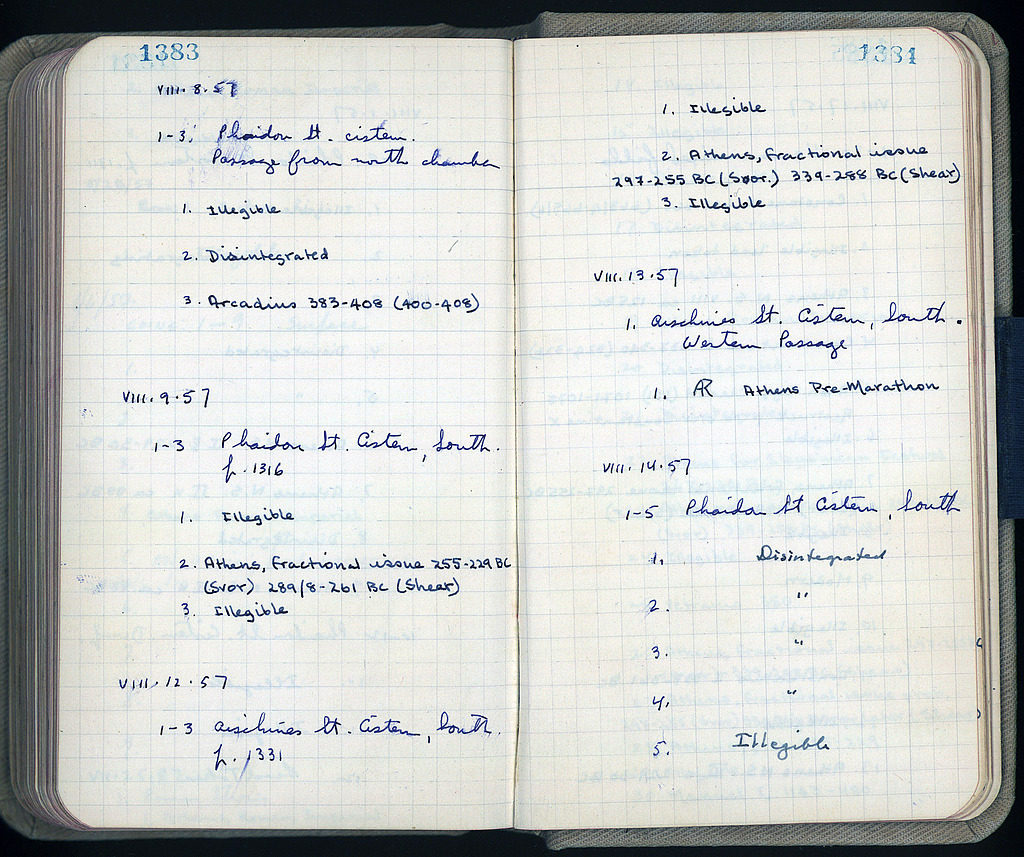 1383
VIII. 8. 57
1-3. Phaidon St. cistern.
Passage from north chamber
1. Illegible
2. Disintegrated
3. Arcadius 383-408 (400-408)
VIII. 9. 57
1-3 Phaidon St. Cistern, South.
p. 1316
1. Illegible
2. Athens, Fractional issue 255-229 BC
(Svor) 289/8-261 BC (Shear)
3. Illegible
VIII. 12. 57
1-3 Aischines St. Cistern, South.
p. 1331
1384
1. Illegible
2. Athens, Fractional issue
297-255 BC (Svor.) 339-288 BC (Shear)
3. Illegible
VIII. 13. 57
1. Aischines St. Cistern, South.
Western Passage
1. AR Athens Pre-Marathon
VIII. 14. 57
1-5 Phaidon St Cistern, South
1. Disintegrated
2. "
3. "
4. "
5. Illegible